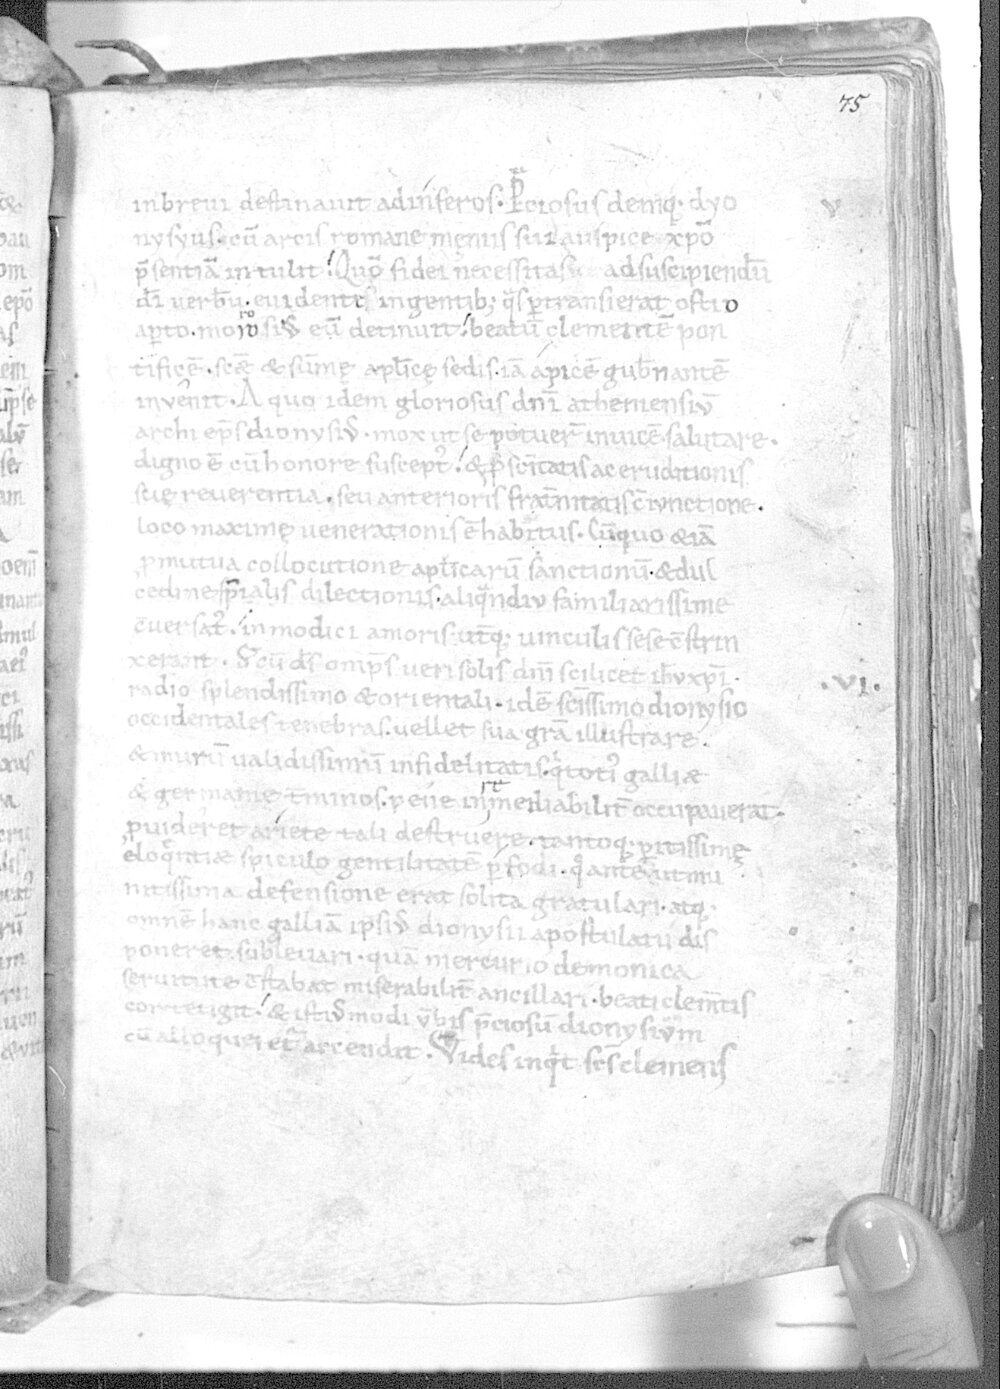 75
in brevi destinavit ad inferos. P̄ciosus deniq; dyo
v
nysyus. cū arcis romane męniis sui auspice xp̄o
p̄sentiā intulit! Quo fidei necessitas ad suscipiendū
dī verbū. evidentis in gentib; q̄s ꝑtransierat ostio
aꝑto. morosiᵘ eū detinuit! beatū clementē pon
tificē. scē & sūmę aplicę sedis. iā apicē gub̄nantē
invenit. A quo idem gloriosus dn̄i atheniensiū
archi ep̄s dionysiᵘ. mox ut se potuer̄ invicē salutare.
digno ē cū honore suscept᷒! & ꝓ sc̄itatis ac eruditionis
suę reverentia. seu anterioris frat̄nitatis c̄iunctione.
loco maximę venerationis ē habitus. Cūquo &iā
ꝓ mutua collocutione aplicarū sanctionū. & dul
cedine sp̄ialis dilectionis. aliq̄ndiu familiarissime
c̄versat᷒! inmodici amoris utq; vinculis sese c̄strin
xerant. Scū ds̄ omp̄s veri solis dn̄i scilicet ih̄u xp̄i.
.vi.
radio splendissimo & orientali. idē sc̄issimo dionysio
occidentales tenebras. vellet sua grā illustrare.
& murū validissimū infidelitatis. q̄ toti᷒ galliæ
& germanię t̄minos. pene inp̄meabilit̄ occupaverat.
ꝓvideret ariete tali destruere. tantoq; ꝑitissimę
eloq̄ntiæ spiculo gentilitatē ꝑfodi. q̄ antea ut mu
nitissima defensione erat solita gratulari. atq;
omnē hanc galliā ipsiᵘ dionysii apostulatu dis
poneret sublevari. quā mercurio demonica
servitute c̄stabat miserabilit̄ ancillari. beati clem̄tis
cor tetigit! & istiᵘmodi v̄bis p̄ciosū dionysiūm
cū alloqueret᷒ accendit. Vides inq̄t scs̄ clemens